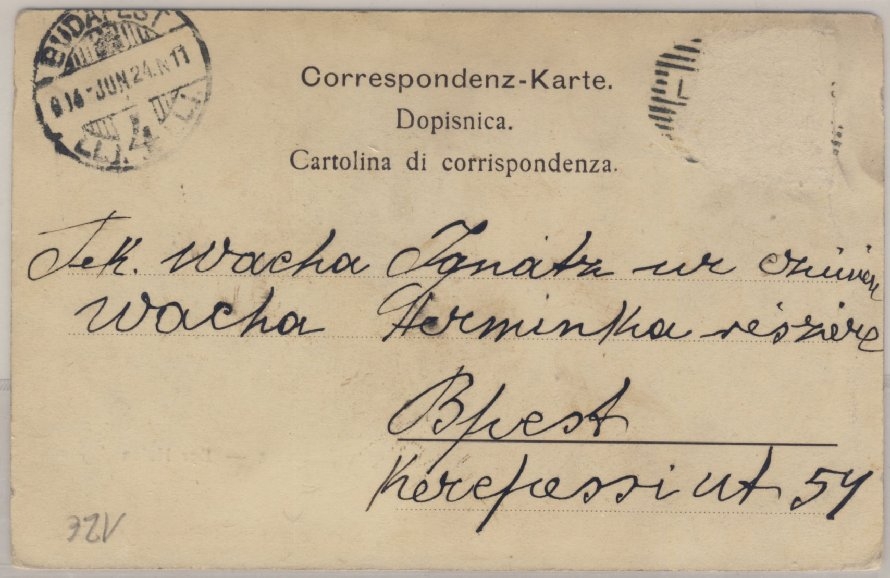 BUDAPEST
914-JUN 24.N 11
4
Correspondenz-Karte.
Dopisnica.
Cartolina di corrispondenza.
Tek. Wacha Ignátz ur czimén
Wacha Herminka részére
Bpest
Kerepessi ut 54
321